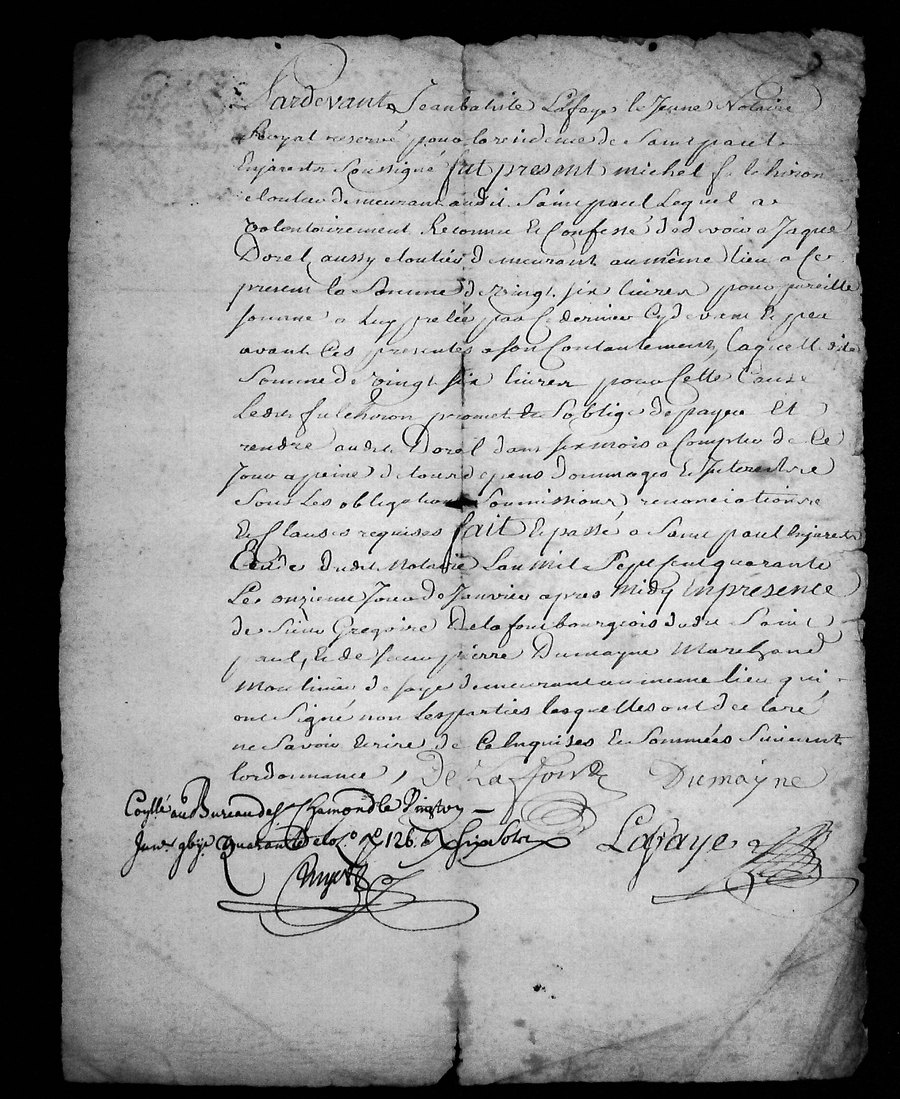 Pardevant Jeanbatiste Lafaye le Jeune Notaire
Royal reservé pour la residence de Saint paul
Enjarest Soussigné fut present michel fulchiron
cloutier demeurant audit Saint paul Lequel a
volontairement Reconnu et Confessé de devoir a Jaque
Dorel aussy cloutier demeurant au même lieu a ce
present la Somme de vingt six livres pour pareille
somme a luy pretée par ce dernier Cy devant et peu
avant Ces presentes a son Contantement, laquelle dite
Somme de vingt six livres pour Cette Cause
Ledit fulchiron promet et S'oblige de payer Et
rendre audit Dorel dans six mois a Compter de Ce
Jour a peine de tous depens dommages et Interest
Sous Les obligations Soumissions renonciations
Et Clauses requises fait Et passé a Saint paul Enjarest
Etude dudit Notaire L'an mil Sept Cent quarante
Le onzieme Jour de Janvier apres midy En presence
de Sieur Gregoire Delafont bourgeois dudit Saint
paul, Et de Sieur pierre Dumayne Marchand
Moulinier de soye demeurant au meme lieu qui
ont Signé non Les parties lesquelles ont declaré
ne Savoir Ecrire de Ce Enquises Et Sommées Suivant
lordonnance, De La Font Dumayne
au Bureau de Chamond le
quarante 126
Lafaye